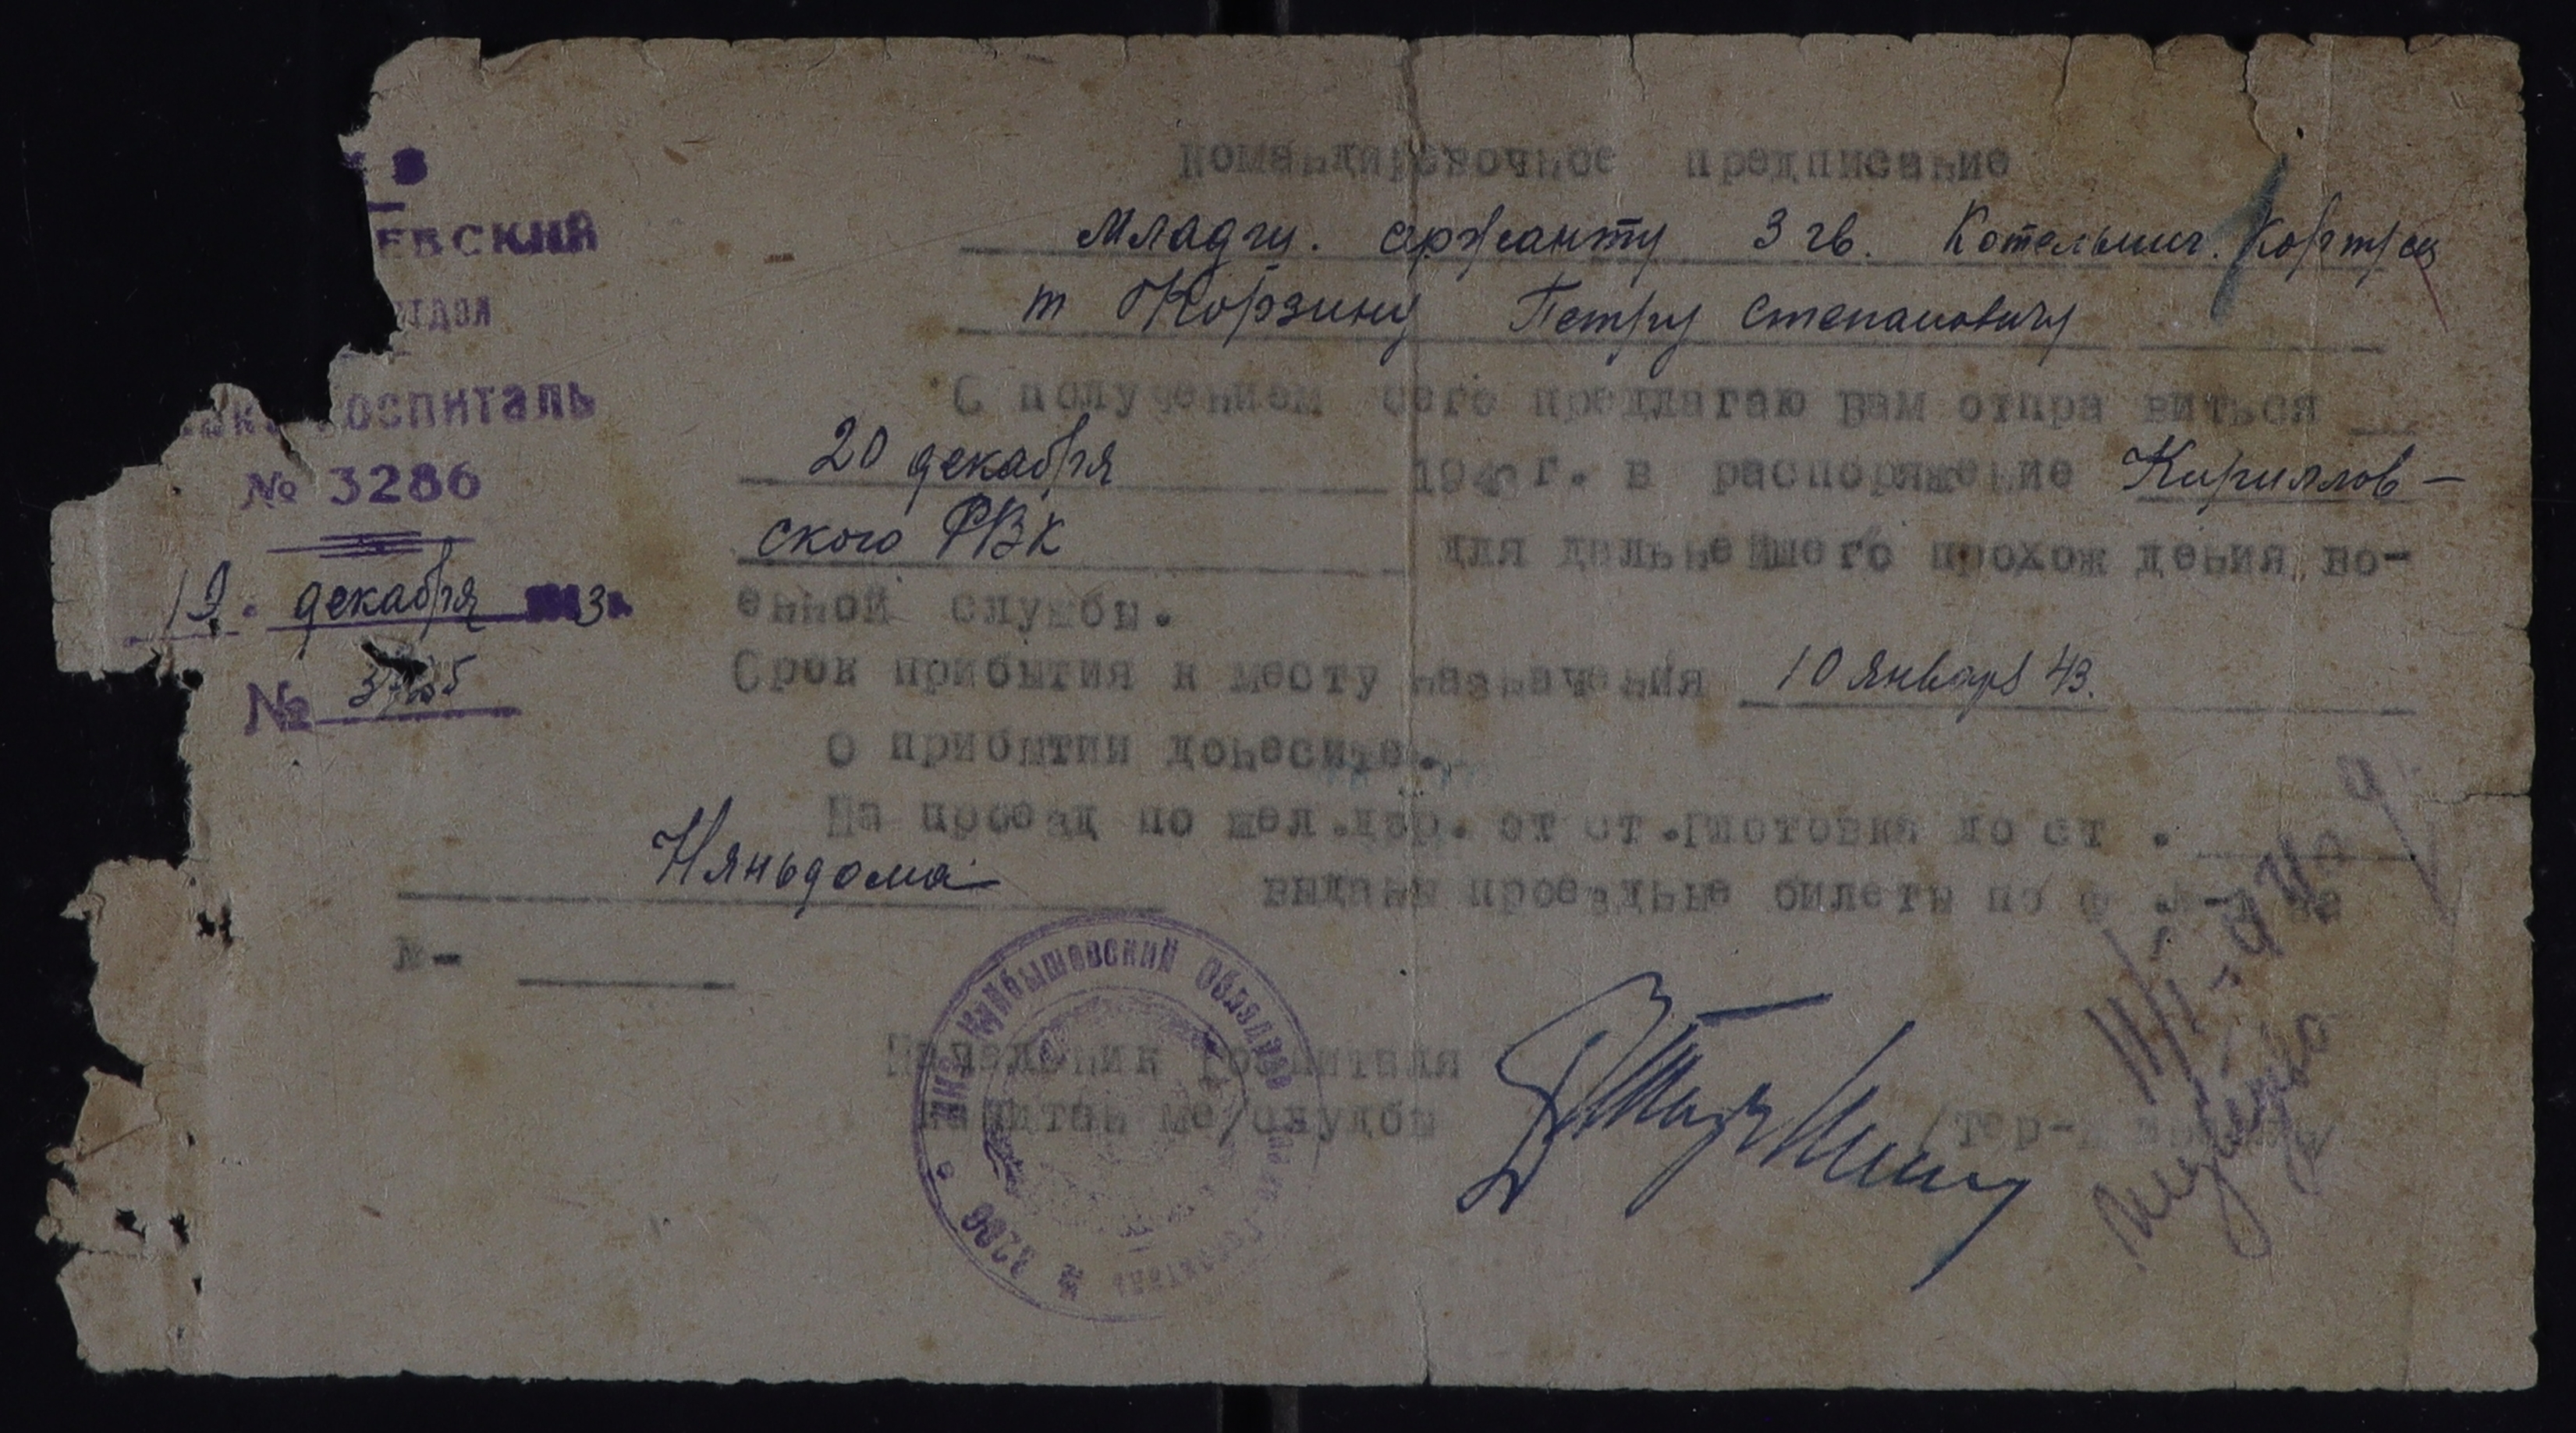 ЕВСКИЙ
отдел
госпиталь
№ 3286
19. декабря 3г.
№
Командировочное предписание
Младш. сержанту 3 гв. Котельнич. Корпуса
т Корзину Петру Степановичу
С получением сего предлагаю Вам отпра виться
20 декабря 1943 г. в распоряжение Кириллов-
ского РВК для дальнейшего прохож дения во-
енной службы.
Срок прибытия к месту назначения 10 января 43.
О прибытии донесите.
На проезд по жел.дор. от ст. Шотовка до ст .
Няньдома выданы проездные билеты по ф
№-
Начальник госпиталя
капитан ме/служб /Тер-
НКЗ Куйбышевский Облздрав
№ 3286